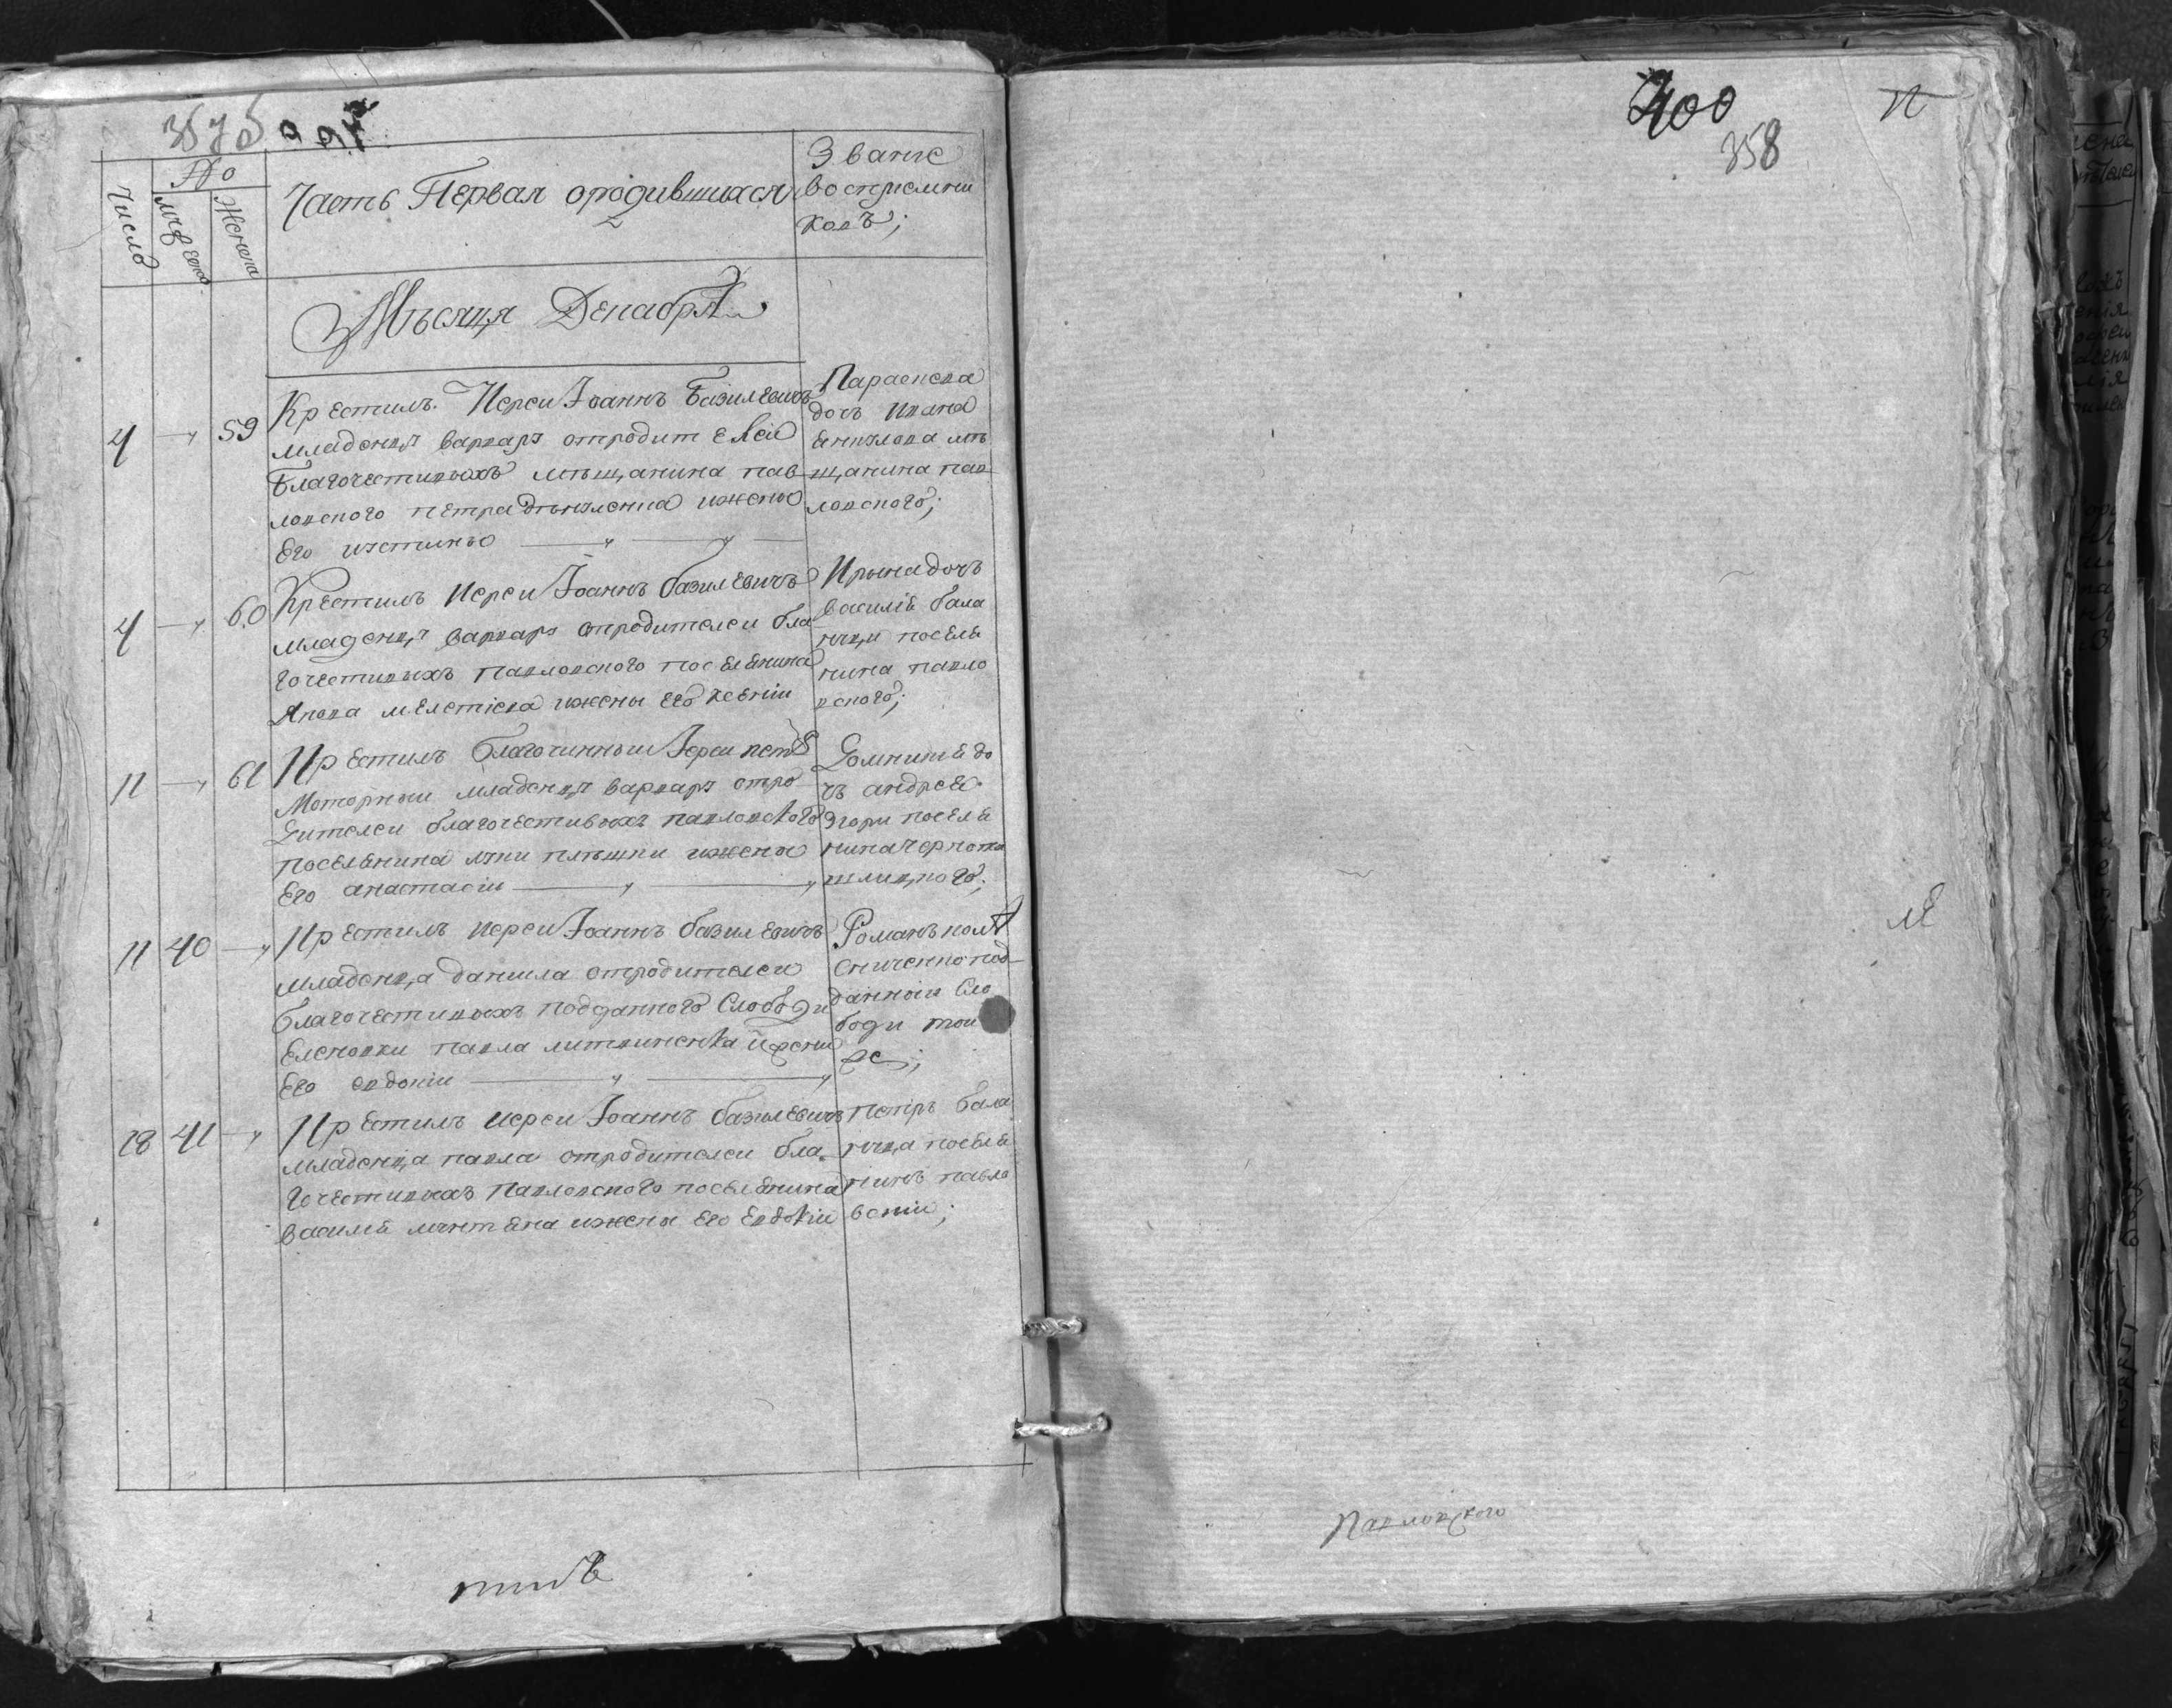 Число
№
Мужеска
Женска
Часть Первая ородившихся
Званїе
восприемни
ковъ;
Мѣсяця Декабря
4 — 59
Крестилъ Иереи Іоаннъ Базилевичъ
младенця варвару отродителей
благочестивыхъ мѣщанина пав
ловского петра ижены
Его устиньи
Параскева
дочъ ивана
мѣ
щанина пав
ловского;
4 — 60
Крестилъ Иереи Іоаннъ базилевичъ
младенця варвару отродителеи бла
гочестивыхъ павловского поселянина
Якова ижены Его ксении
Ирина дочъ
василія бала
поселя
нина павло
вского;
11 — 61
Крестилъ благочинныи Іереи петръ
Моторныи младенця варвару отро
дителеи благочестивыхъ павловского
поселянина ижены
Его анастасіи
Домникія до
чъ андрея
поселя
нина черното
шлицкого;
11 40 —
Крестилъ иереи Іоаннъ базилевичъ
младенца данила отродителеи
благочестивыхъ подданного Слободи
Еленовки павла литвиненка ижени
Его евдокіи
Романъ
под
данныи Сло
боди тои
же;
28 41 —
Крестилъ иереи Іоаннъ базилевичъ
младенца павла отродителеи бла
гочестивыхъ павловского поселянина
василія ижены Его Евдокіи
петръ бала
поселя
нинъ павло
вскіи;
400
358
Павловского